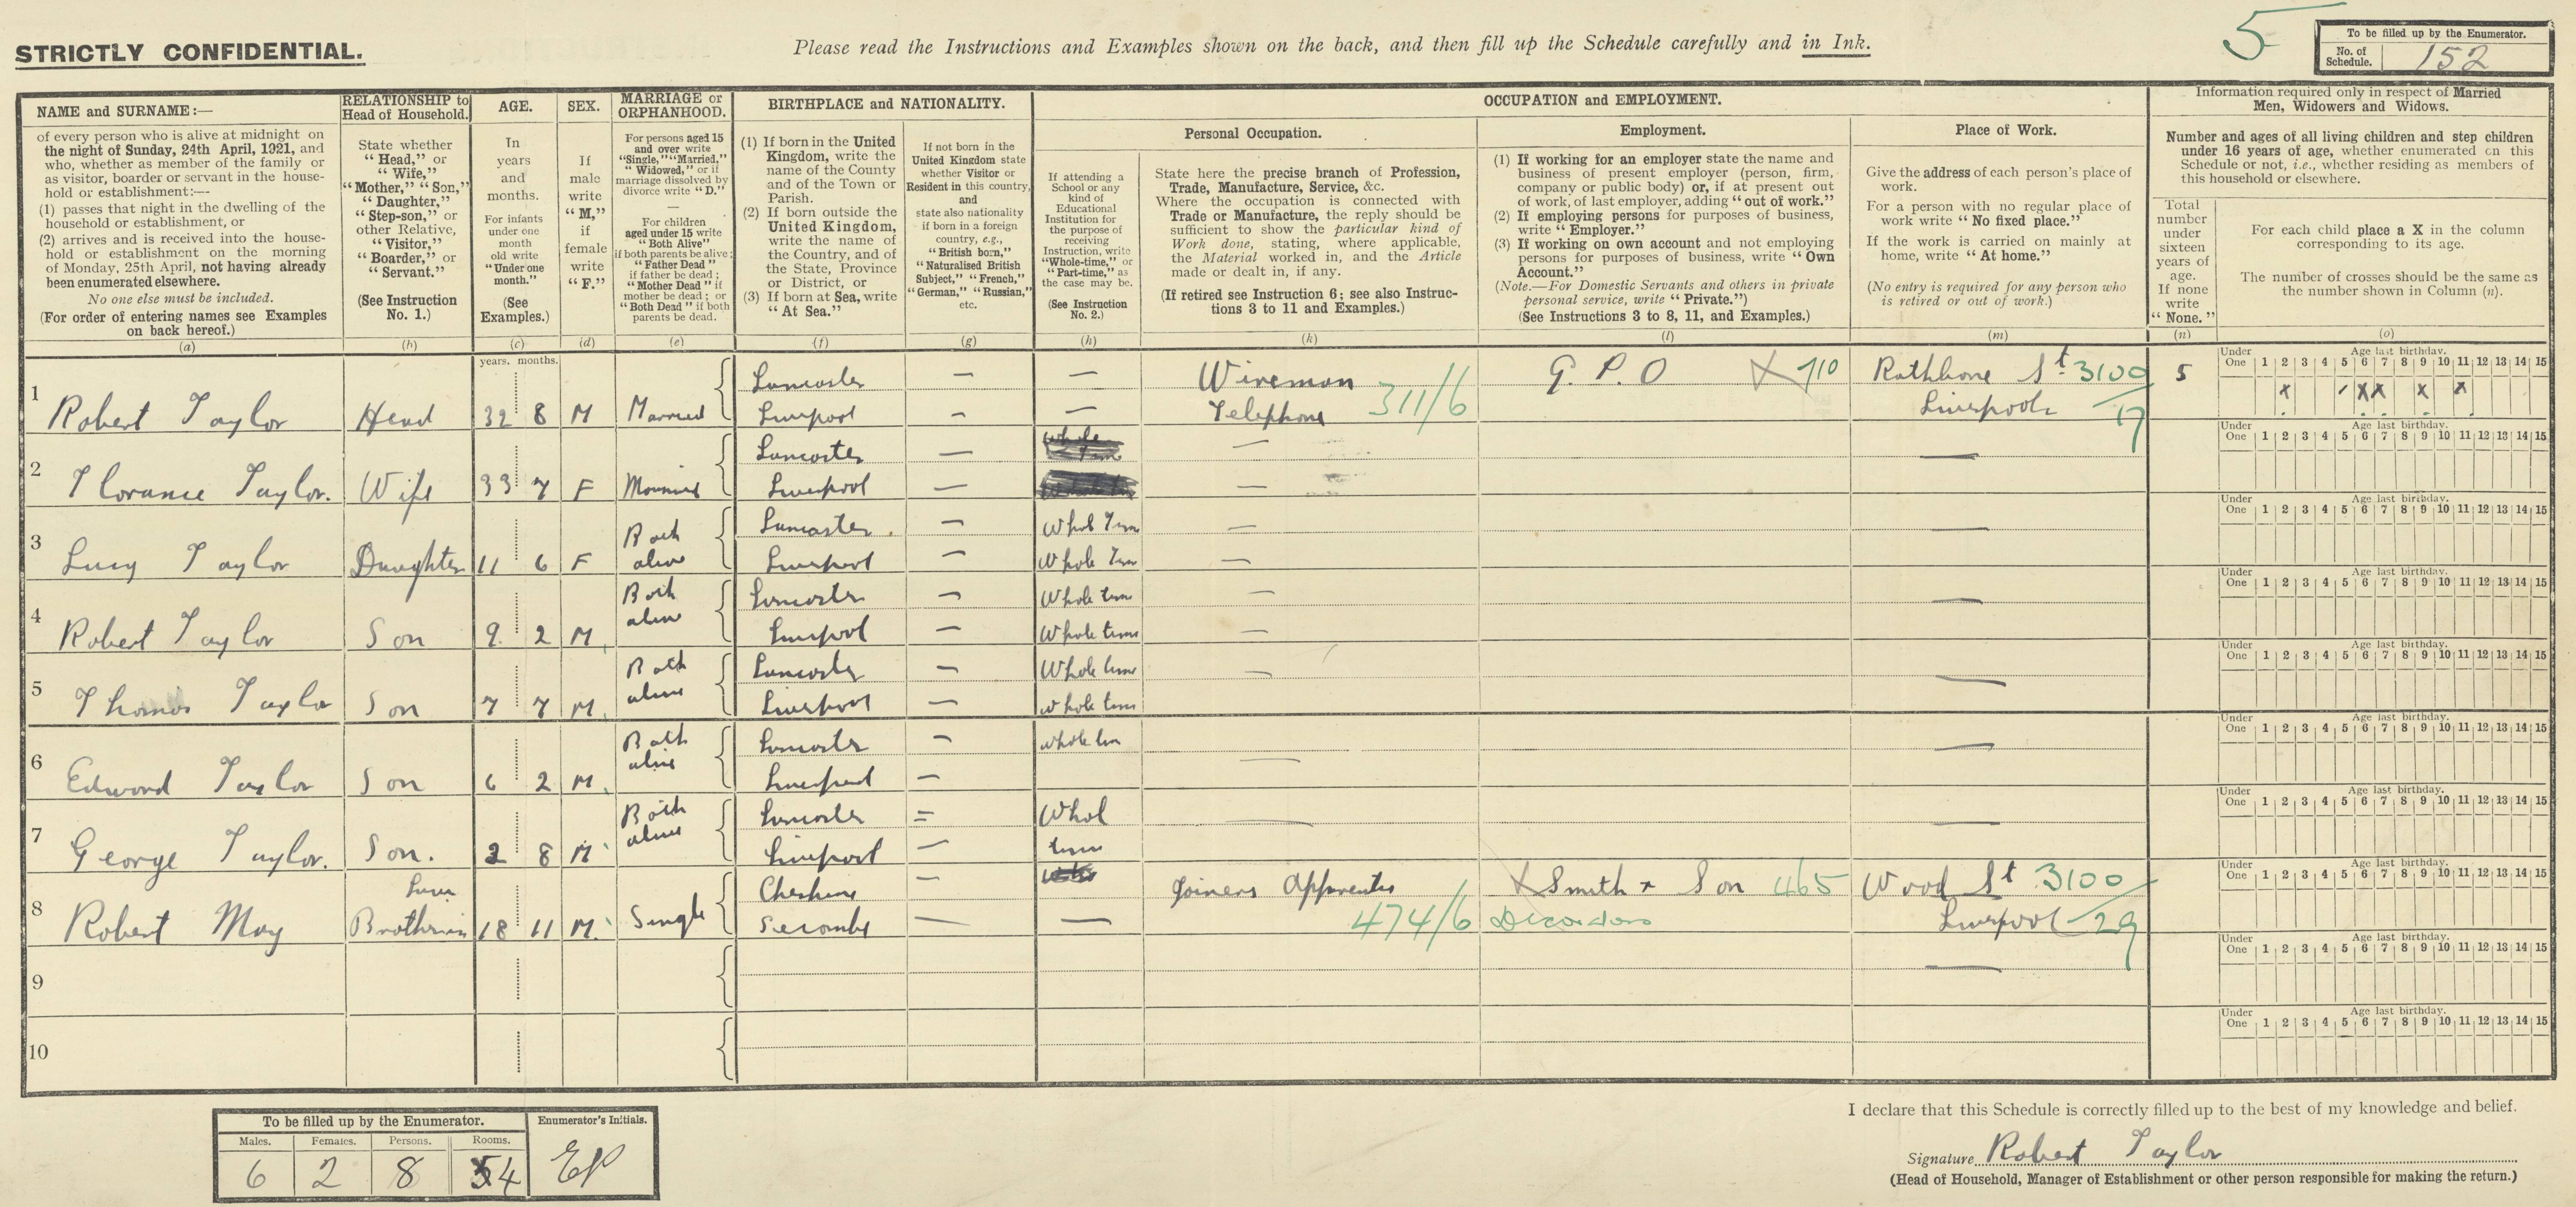 STRICTLY CONFIDENTIAL.
Please read the Instructions and Examples shown on the back, and then fill up the Schedule carefully and in Ink.
5
To be filled up by the Enumerator.
No. of Schedule. 152
NAME and SURNAME:—
of every person who is alive at midnight on
the night of Sunday, 24th April, 1921, and
who, whether as member of the family or
as visitor, boarder or servant in the house-
hold or establishment:—
(1) passes that night in the dwelling of the
household or establishment, or
(2) arrives and is received into the house-
hold or establishment on the morning
of Monday, 25th April, not having already
been enumerated elsewhere.
No one else must be included.
(For order of entering names see Examples
on back hereof.)
(a)
RELATIONSHIP to
Head of Household.
State whether
"Head," or
"Wife,"
"Mother," "Son,"
"Daughter,"
"Step-son," or
other Relative,
"Visitor,"
"Boarder," or
"Servant."
(See Instruction
No. 1.)
(b)
AGE.
In
years
and
months.
For infants
under one
month
old write
"Under one
month."
(See
Examples.)
(c)
SEX.
If
male
write
"M,"
if
female
write
"F."
(d)
MARRIAGE or
ORPHANHOOD.
For persons aged 15
and over write
"Single," "Married,"
"Widowed," or if
marriage dissolved by
divorce write "D."
For children
aged under 15 write
"Both Alive"
if both parents be alive;
"Father Dead"
if father be dead;
"Mother Dead" if
mother be dead; or
"Both Dead" if both
parents be dead.
(e)
BIRTHPLACE and NATIONALITY.
(1) If born in the United
Kingdom, write the
name of the County
and of the Town or
Parish.
(2) If born outside the
United Kingdom,
write the name of
the Country, and of
the State, Province
or District, or
(3) If born at Sea, write
"At Sea."
(f)
If not born in the
United Kingdom state
whether Visitor or
Resident in this country,
and
state also nationality
if born in a foreign
country, e.g.,
"British born,"
"Naturalised British
Subject," "French,"
"German," "Russian,"
etc.
(g)
OCCUPATION and EMPLOYMENT.
If attending a
School or any
kind of
Educational
Institution for
the purpose of
receiving
Instruction, write
"Whole-time," or
"Part-time," as
the case may be.
(See Instruction
No. 2.)
(h)
Personal Occupation.
State here the precise branch of Profession,
Trade, Manufacture, Service, &c.
Where the occupation is connected with
Trade or Manufacture, the reply should be
sufficient to show the particular kind of
Work done, stating, where applicable,
the Material worked in, and the Article
made or dealt in, if any.
(If retired see Instruction 6; see also Instruc-
tions 3 to 11 and Examples.)
(k)
Employment.
(1) If working for an employer state the name and
business of present employer (person, firm,
company or public body) or, if at present out
of work, of last employer, adding "out of work."
(2) If employing persons for purposes of business,
write "Employer."
(3) If working on own account and not employing
persons for purposes of business, write "Own
Account."
(Note.—For Domestic Servants and others in private
personal service, write "Private.")
(See Instructions 3 to 8, 11, and Examples.)
(l)
Place of Work.
Give the address of each person's place of
work.
For a person with no regular place of
work write "No fixed place."
If the work is carried on mainly at
home, write "At home."
(No entry is required for any person who
is retired or out of work.)
(m)
Information required only in respect of Married
Men, Widowers and Widows.
Number and ages of all living children and step children
under 16 years of age, whether enumerated on this
Schedule or not, i.e., whether residing as members of
this household or elsewhere.
Total
number
under
sixteen
years of
age.
If none
write
"None."
(n)
For each child place a X in the column
corresponding to its age.
The number of crosses should be the same as
the number shown in Column (n).
(o)
years. months.
Under One Age last birthday. 1 2 3 4 5 6 7 8 9 10 11 12 13 14 15
1 Robert Taylor Head 32 8 M Married Lancaster Liverpool — — Wireman Telephone 311/6 G. P. O X 710 Rathbone St. Liverpool 3100/17 5 x x x x x
Under One Age last birthday. 1 2 3 4 5 6 7 8 9 10 11 12 13 14 15
2 Florance Taylor. Wife 33 7 F Married Lancaster Liverpool — — —
Under One Age last birthday. 1 2 3 4 5 6 7 8 9 10 11 12 13 14 15
3 Lucy Taylor Daughter 11 6 F Both alive Lancaster Liverpool — Whole Time — —
Under One Age last birthday. 1 2 3 4 5 6 7 8 9 10 11 12 13 14 15
4 Robert Taylor Son 9 2 M Both alive Lancaster Liverpool — Whole time — —
Under One Age last birthday. 1 2 3 4 5 6 7 8 9 10 11 12 13 14 15
5 Thomas Taylor Son 7 7 M Both alive Lancaster Liverpool — Whole time — —
Under One Age last birthday. 1 2 3 4 5 6 7 8 9 10 11 12 13 14 15
6 Edward Taylor Son 6 2 M Both alive Lancaster Liverpool — whole tim — —
Under One Age last birthday. 1 2 3 4 5 6 7 8 9 10 11 12 13 14 15
7 George Taylor. Son. 2 8 M Both alive Lancaster Liverpool — Whol time — —
Under One Age last birthday. 1 2 3 4 5 6 7 8 9 10 11 12 13 14 15
8 Robert May Brother in Law 18 11 M Single Cheshire Secombe — — Joiners Apprentis 474/6 X Smith & Son 465 Decorators Wood St Liverpool 3100/29
Under One Age last birthday. 1 2 3 4 5 6 7 8 9 10 11 12 13 14 15
9 —
Under One Age last birthday. 1 2 3 4 5 6 7 8 9 10 11 12 13 14 15
10
To be filled up by the Enumerator.
Enumerator's Initials.
Males. Females. Persons. Rooms.
6 2 8 4 EP
I declare that this Schedule is correctly filled up to the best of my knowledge and belief.
Signature Robert Taylor
(Head of Household, Manager of Establishment or other person responsible for making the return.)